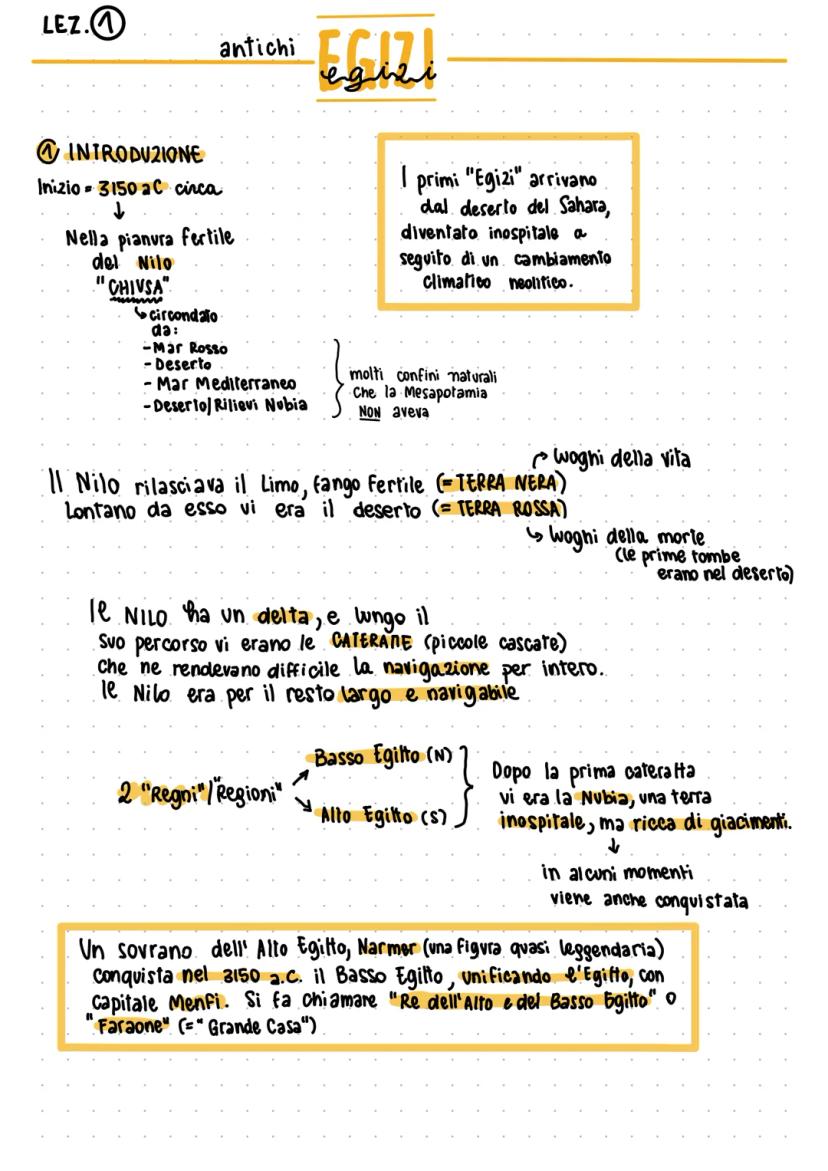 LEZ. 1
antichi
EGIZI
egizi
1 INTRODUZIONE
Inizio = 3150 aC circa
↓
Nella pianura fertile
del Nilo
"CHIUSA"
↳ circondato
da:
- Mar Rosso
- Deserto
- Mar Mediterraneo
- Deserto/Rilievi Nubia
molti confini naturali
che la Mesapotamia
NON aveva
I primi "Egizi" arrivano
dal deserto del Sahara,
diventato inospitale a
seguito di un cambiamento
climatico neolitico.
→ luoghi della vita
Il Nilo rilasciava il Limo, fango fertile (= TERRA NERA)
Lontano da esso vi era il deserto (= TERRA ROSSA)
↳ luoghi della morte
(le prime tombe
erano nel deserto)
Il NILO ha un delta, e lungo il
suo percorso vi erano le CATERATTE (piccole cascate)
che ne rendevano difficile la navigazione per intero.
Il Nilo era per il resto largo e navigabile
2 "Regni"/"Regioni"
↗ Basso Egitto (N)
↘ Alto Egitto (S)
Dopo la prima cateratta
vi era la Nubia, una terra
inospitale, ma ricca di giacimenti.
↓
in alcuni momenti
viene anche conquistata
Un sovrano dell' Alto Egitto, Narmer (una figura quasi leggendaria)
conquista nel 3150 a.C. il Basso Egitto, unificando l'Egitto, con
capitale Menfi. Si fa chiamare "Re dell'Alto e del Basso Egitto" o
"Faraone" (= "Grande Casa")